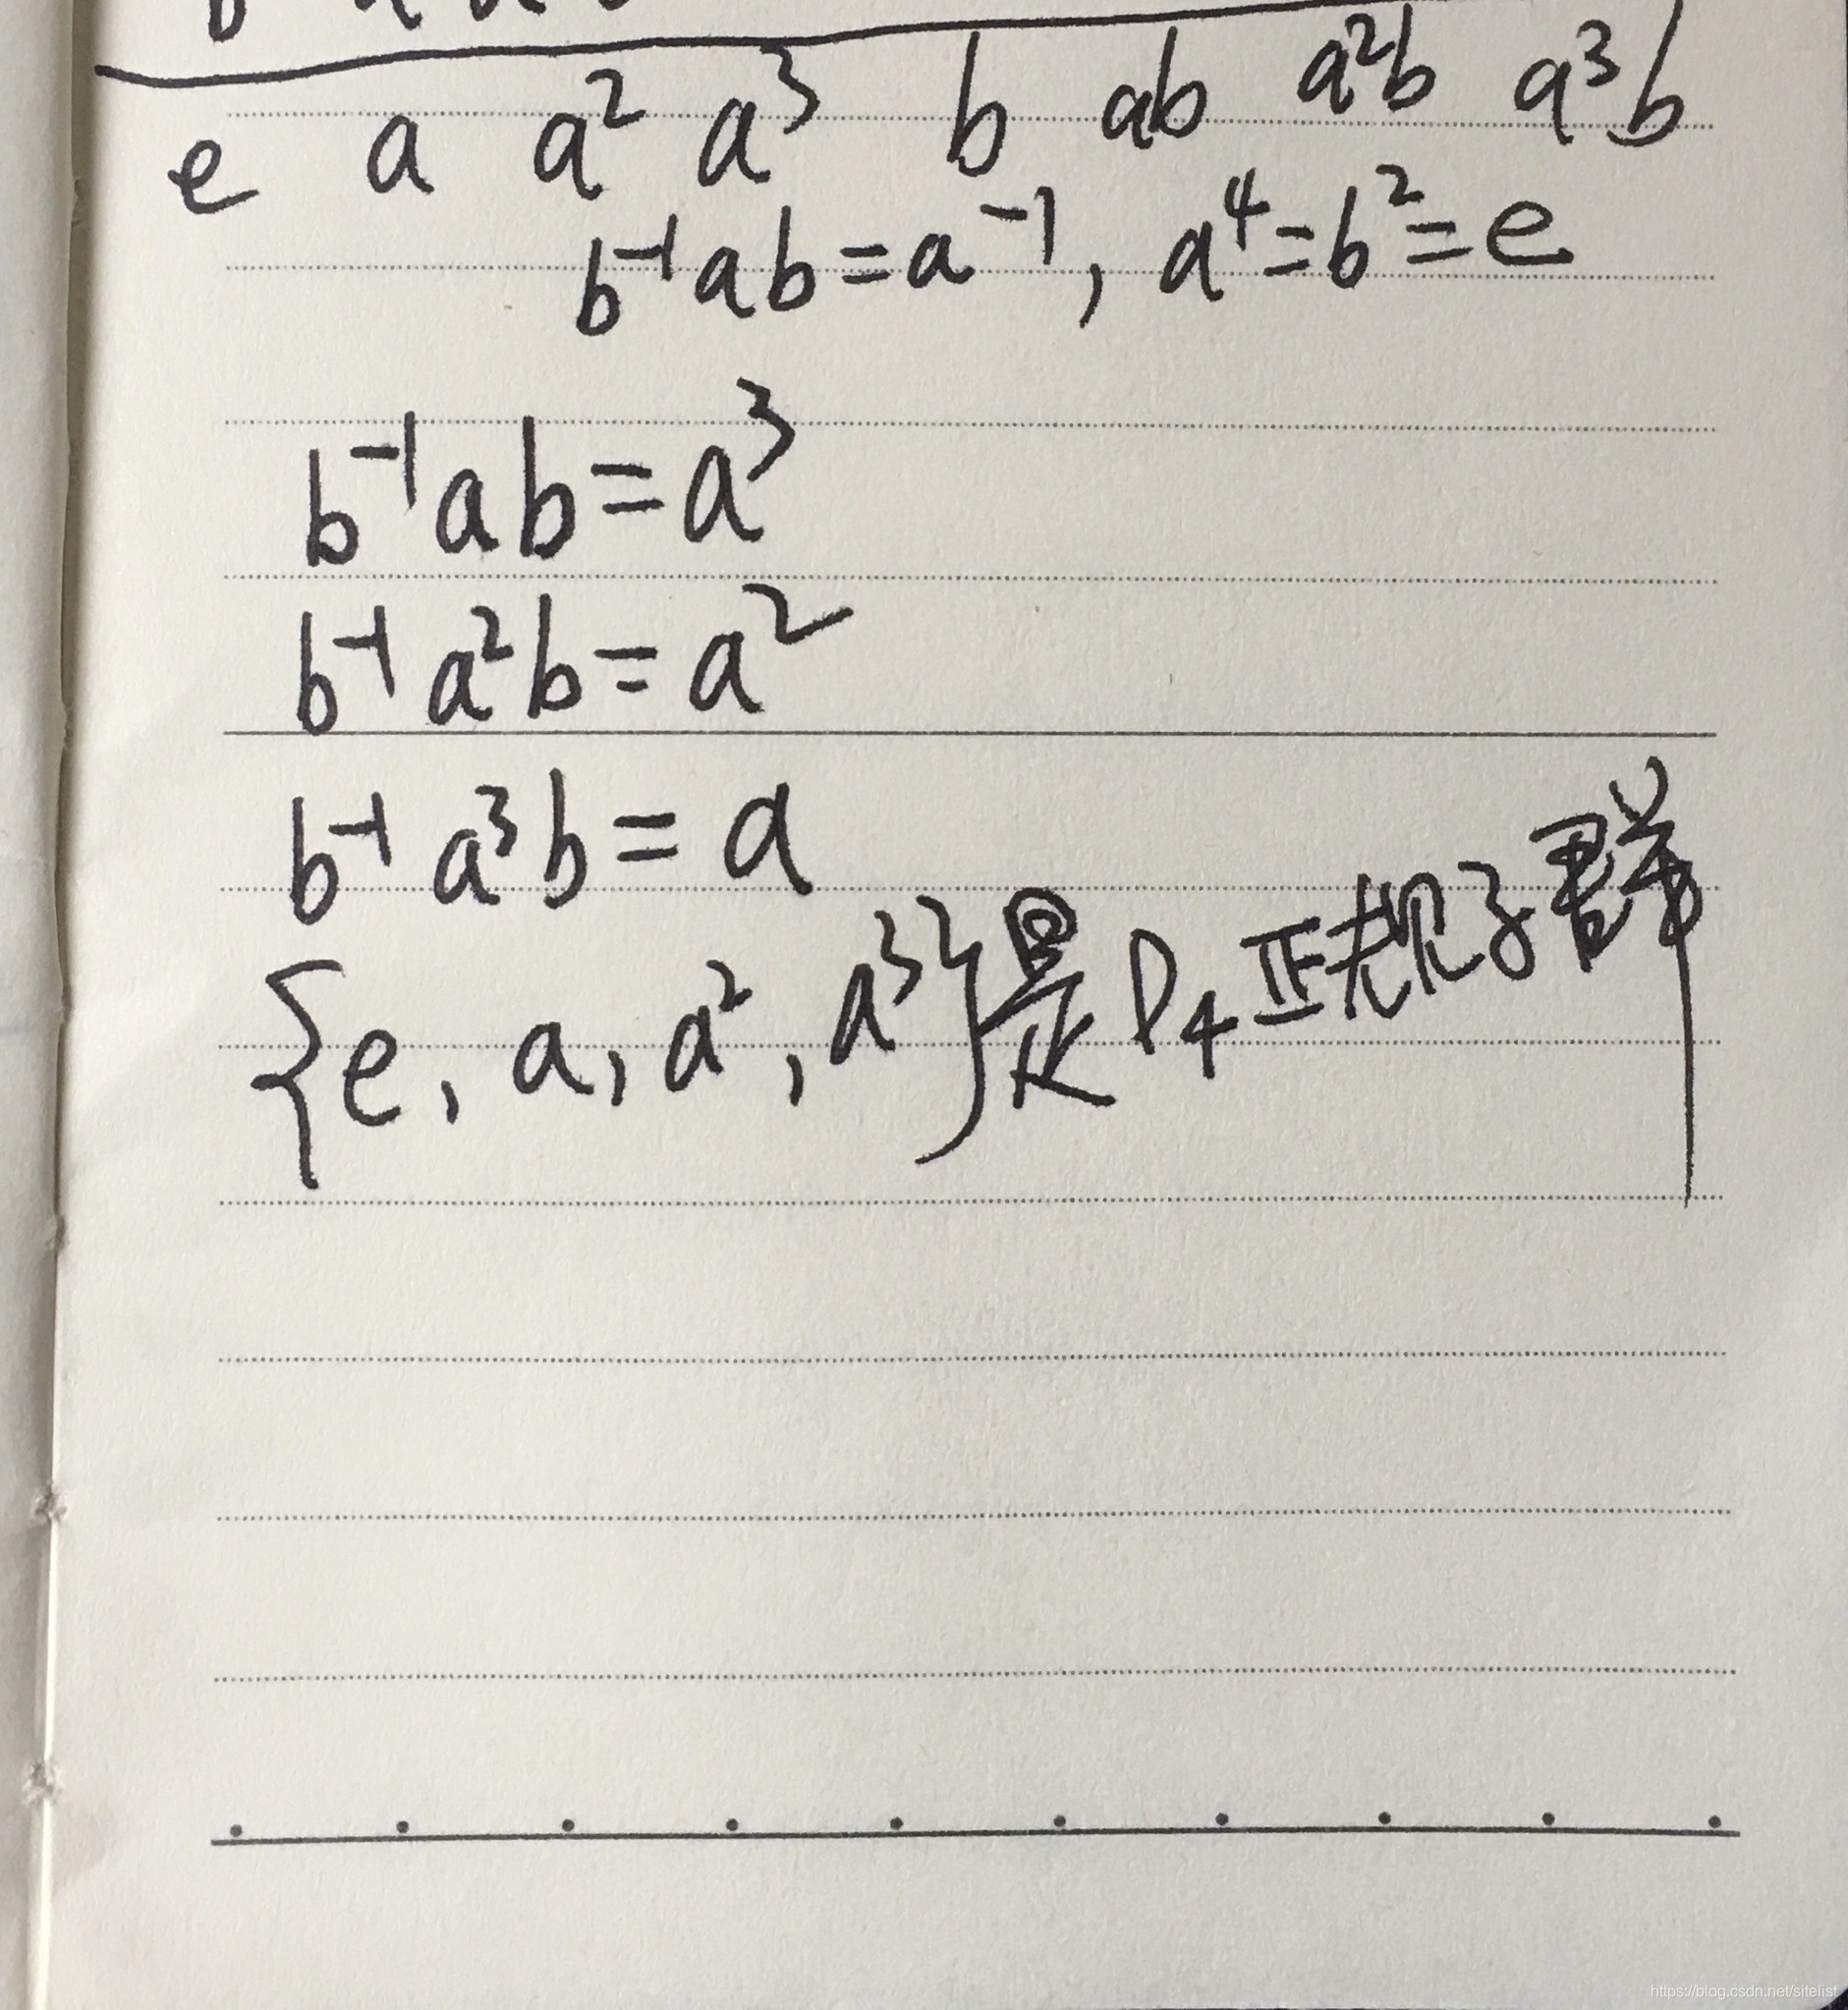 e a a² a³ b ab a²b a³b
b⁻¹ab=a⁻¹, a⁴=b²=e
b⁻¹ab=a³
b⁻¹a²b=a²
b⁻¹a³b=a
{e, a, a², a³}是D₄正规子群
https://blog.csdn.net/sitelist